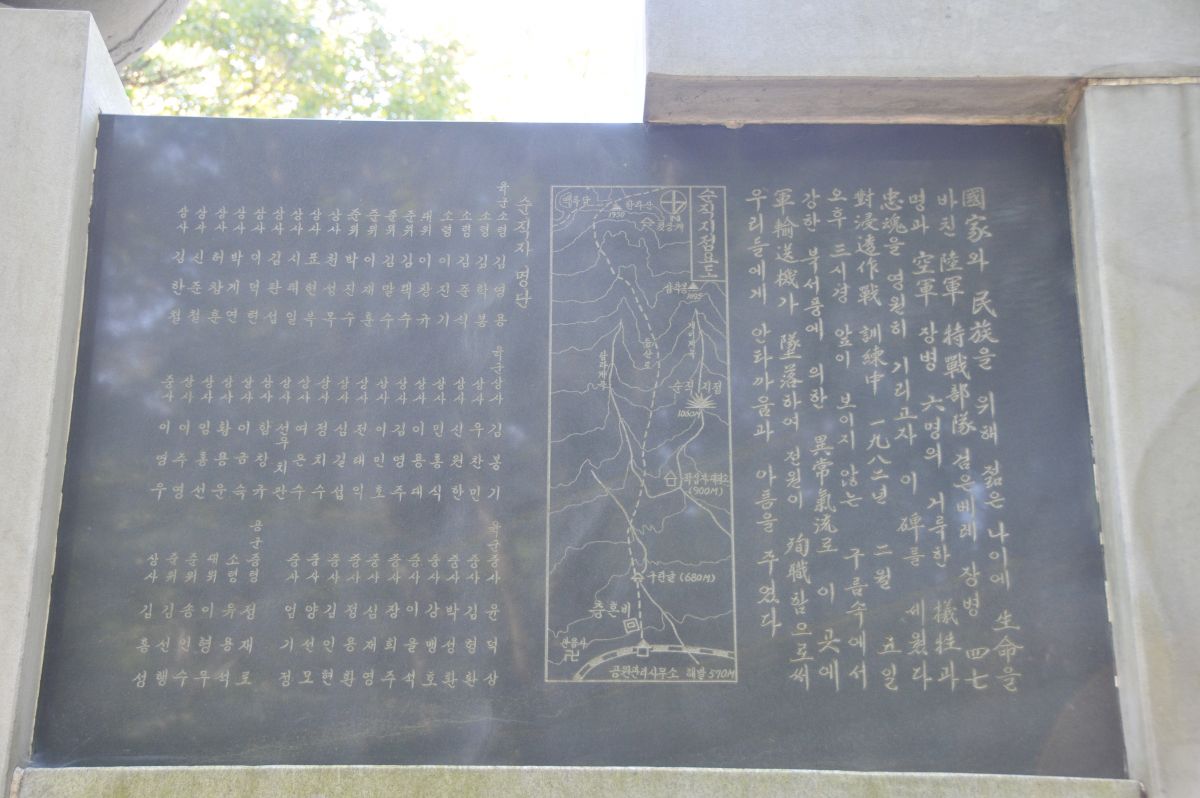 國家와 民族을 위해 젊은 나이에 生命을
바친 陸軍 特戰部隊 검은베레 장병 四七
명과 空軍 장병 六명의 거룩한 犧牲과
忠魂을 영원히 기리고자 이 碑를 세웠다
對浸透作戰 訓練中 一九八二년 二월 五일
오후 三시경 앞이 보이지 않는 구름속에서
강한 북서풍에 의한 異常氣流로 이 곳에
軍輸送機가 墜落하여 전원이 殉職함으로써
우리들에게 안타까움과 아픔을 주었다
순직지점요도
백록담
한라산
1950
N
왕관릉
삼각봉
1695
개미계곡
등산로
탐라계곡
순직 지점
1060M
적십자대피소
(900M)
구린굴 (680M)
충혼비
관음사
卍
공원관리사무소 해발 570M
순직자 명단
육군소령 김영용
소령 김학봉
소령 김준식
소령 이진기
대위 이장규
중위 김택수
중위 이재훈
준위 박진수
상사 천성옥
상사 표현북
상사 이덕련
상사 박계연
상사 허창훈
상사 신준철
상사 김한철
육군상사 김봉기
상사 옥찬민
상사 신원한
상사 민홍식
상사 이용대
상사 김영주
상사 이민호
상사 전대익
상사 심길섭
상사 정치수
상사 여은수
상사 선우치관
상사 함창규
상사 이금속
상사 황용운
상사 임홍선
상사 이주영
중사 이영우
육군중사 윤덕상
중사 김형환
중사 박성환
중사 강맹호
중사 이을석
중사 장희주
중사 심저영
중사 정용환
중사 김인현
중사 양선모
중사 엄기정
공군중령 정재로
소령 유용석
대위 이형무
중위 송인수
준위 김선행
상사 김홍성